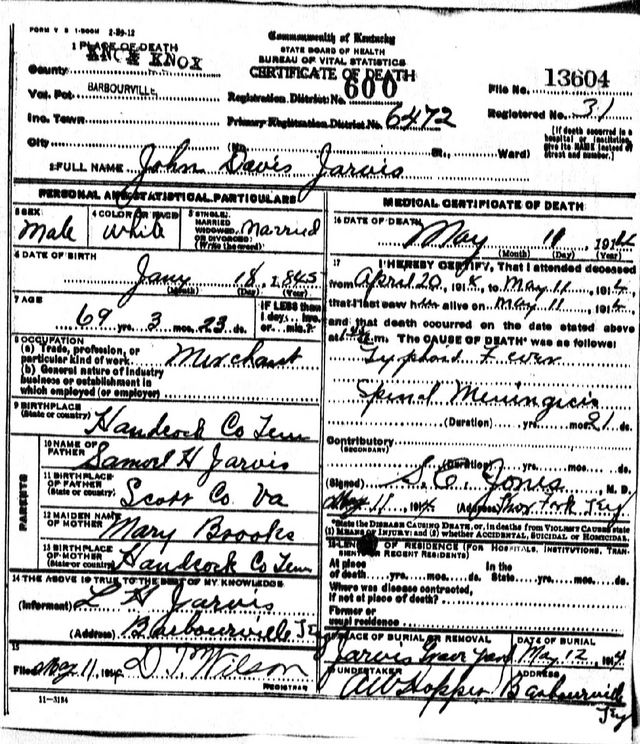 FORM V S 1-500M 2-29-12
Commonwealth of Kentucky
STATE BOARD OF HEALTH
BUREAU OF VITAL STATISTICS
CERTIFICATE OF DEATH
1 PLACE OF DEATH
County KNOX KNOX
Vot. Pct BARBOURVILLE
Inc. Town
City (No. St., Ward)
Registration District No. 600
Primary Registration District No. 6472
File No. 13604
Registered No. 31
[If death occurred in a
hospital or institution,
give its NAME instead of
street and number.]
2 FULL NAME John Davis Jarvis
PERSONAL AND STATISTICAL PARTICULARS
3 SEX Male
4 COLOR OR RACE White
5 SINGLE, MARRIED WIDOWED, OR DIVORCED (Write the word) Married
6 DATE OF BIRTH
Jany 18, 1845
(Month) (Day) (Year)
7 AGE
69 yrs. 3 mos. 23 ds.
IF LESS than
1 day,... hrs.
or... min.?
8 OCCUPATION
(a) Trade, profession, or
particular kind of work Merchant
(b) General nature of industry
business or establishment in
which employed (or employer)
9 BIRTHPLACE
(State or country) Handcock Co Tenn
PARENTS
10 NAME OF
FATHER Samuel H Jarvis
11 BIRTHPLACE
OF FATHER
(State or country) Scott Co. Va
12 MAIDEN NAME
OF MOTHER Mary Brooks
13 BIRTHPLACE
OF MOTHER
(State or country) Handcock Co Tenn
14 THE ABOVE IS TRUE TO THE BEST OF MY KNOWLEDGE
(Informant) L H Jarvis
(Address) Barbourville Ky
15
Filed May 11, 1914 D T Wilson
REGISTRAR
11-3184
MEDICAL CERTIFICATE OF DEATH
16 DATE OF DEATH
May 11, 1914
(Month) (Day) (Year)
17 I HEREBY CERTIFY, That I attended deceased
from April 20, 1914, to May 11, 1914,
that I last saw him alive on May 11, 1914,
and that death occurred on the date stated above
at m. The CAUSE OF DEATH was as follows:
Typhoid Fever
Spinal Meningicis
(Duration) yrs. mos. 21 ds.
Contributory
(SECONDARY)
(Duration) yrs. mos. ds.
(Signed) S. C. Jones M. D.
May 11, 1914 (Address) Knox Fork Ky
*State the DISEASE CAUSING DEATH, or, in deaths from VIOLENT CAUSES state
(1) MEANS OF INJURY; and (2) whether ACCIDENTAL, SUICIDAL or HOMICIDAL.
18 LENGTH OF RESIDENCE (FOR HOSPITALS, INSTITUTIONS, TRAN-
SIENTS OR RECENT RESIDENTS)
At place of death yrs. mos. ds. In the State yrs. mos. ds.
Where was disease contracted,
if not at place of death?
Former or
usual residence
19 PLACE OF BURIAL OR REMOVAL
Jarvis Grave Yard
DATE OF BURIAL
May 12, 1914
20 UNDERTAKER
A W Hopper
ADDRESS
Barbourville
Ky